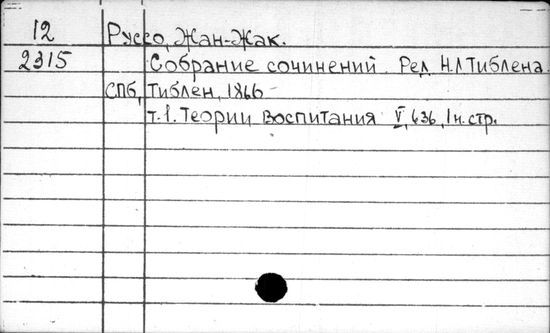 12 Руссо, Жан-Жак.
2315 Собрание сочинений. Ред. Н.Л Тиблена.
СПб, Тиблен, 1866-
т.1. Теории воспитания V, 636, 1 н. стр.